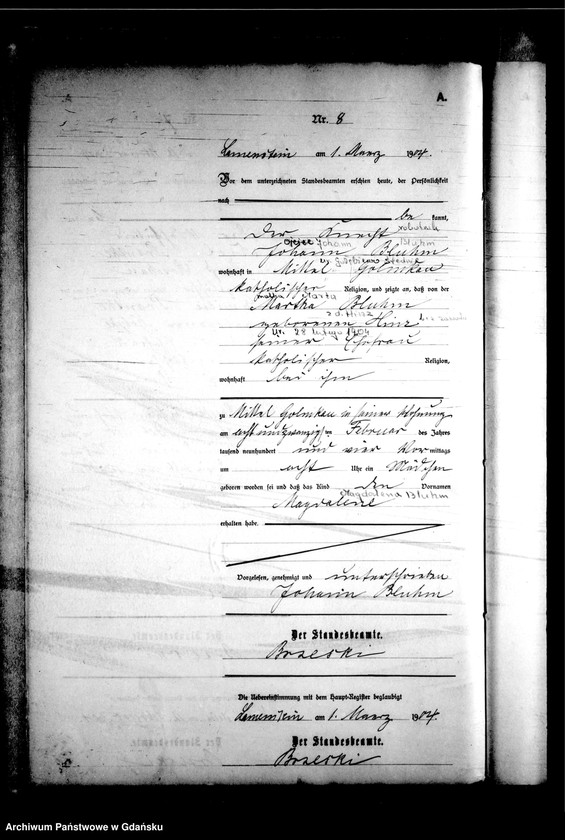 A.
Nr. 8
Lamenstein am 1. Maerz 1904.
Vor dem unterzeichneten Standesbeamten erschien heute, der Persönlichkeit
nach
be kannt,
der Knecht robotnik
ojciec Johann Bluhm
Johann Bluhm
wohnhaft in Mittel Golmkau
katholischer Religion, und zeigte an, daß von der
matka Marta
Martha Bluhm
z d. Hinz
geborenen Hinz
ur. 28 lutego 1904
seiner Ehefrau
katholischer Religion,
wohnhaft bei ihm
zu Mittel Golmkau in seiner Wohnung
am acht und zwanzigsten Februar des Jahres
tausend neunhundert und vier Vor mittags
um acht Uhr ein Mädchen
geboren worden sei und daß das Kind den Vornamen
Magdalena Bluhm
Magdalene
erhalten habe.
Vorgelesen, genehmigt und unterschrieben
Johann Bluhm
Der Standesbeamte.
Brzeski
Die Uebereinstimmung mit dem Haupt-Register beglaubigt
Lamenstein am 1. Maerz 1904.
Der Standesbeamte.
Brzeski
Archiwum Państwowe w Gdańsku